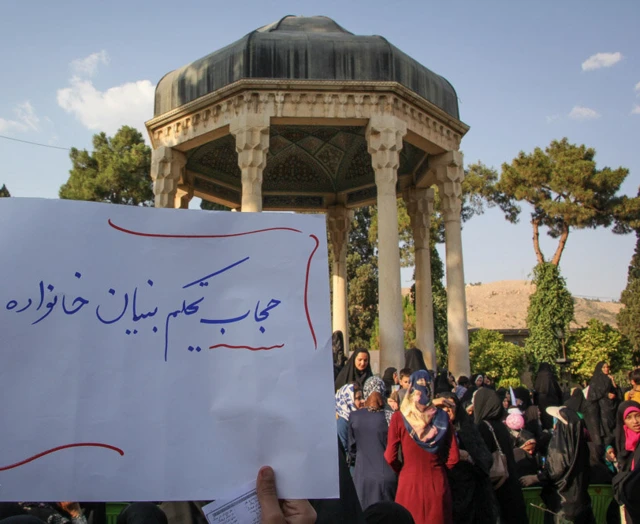 حجاب تحکیم بنیان خانواده